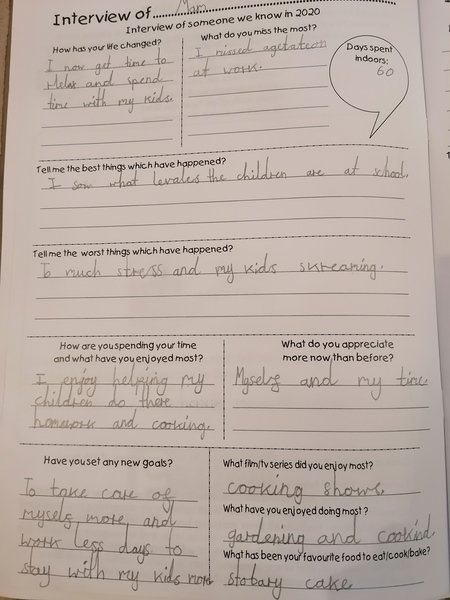 Interview of Mam
Interview of someone we know in 2020
How has your life changed?
I now get time to
relax and spend
time with my kids.
What do you miss the most?
I missed agetateon
at work.
Days spent
indoors:
60
Tell me the best things which have happened?
I saw what levales the children are at school.
Tell me the worst things which have happened?
To much stress and my kids skreaming.
How are you spending your time
and what have you enjoyed most?
I enjoy helping my
children do there
homework and cooking.
What do you appreciate
more now than before?
Myself and my time
Have you set any new goals?
To take care of
myself more and
work less days to
stay with my kids more
What film/tv series did you enjoy most?
cooking shows.
What have you enjoyed doing most?
gardening and cookind.
What has been your favourite food to eat/cook/bake?
stobary cake